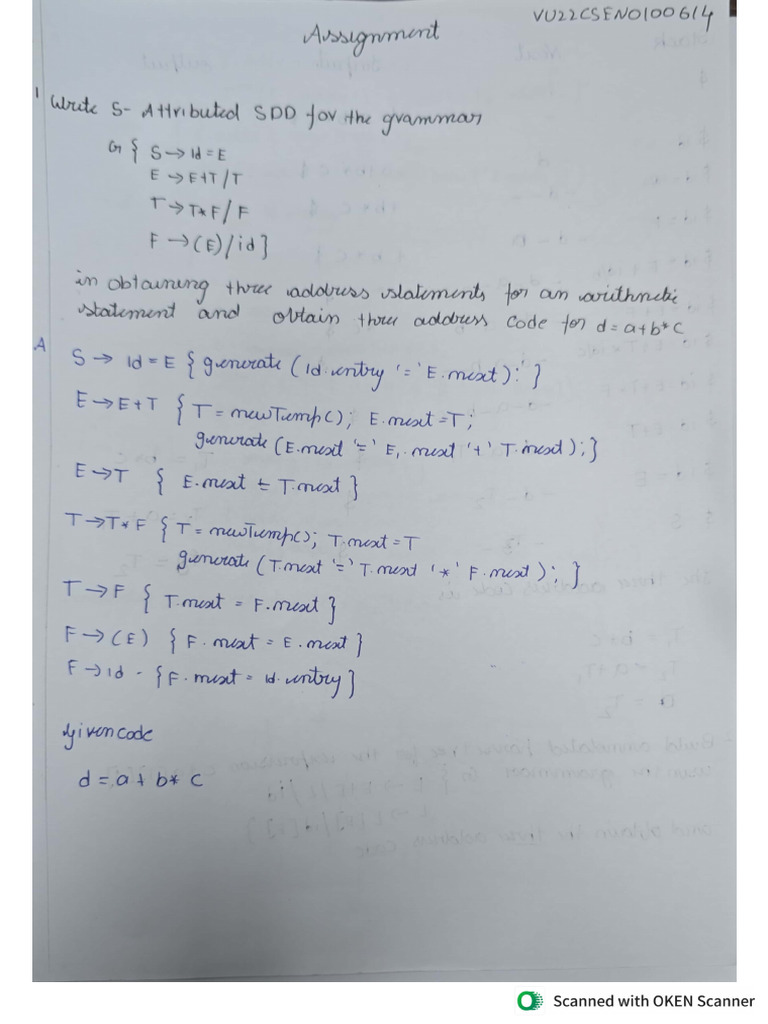 VU22CSEN0100614
Assignment
1 Write S- Attributed SDD for the grammar
G { S → id = E
E → E+T / T
T → T* F / F
F → (E) / id }
in obtaining three address statements for an arithmetic
statement and obtain three address code for d = a+b*c
A
S → id = E { generate (id.entry '=' E.next); }
E → E+T { T = newTemp(); E.next = T;
generate (E.next '=' E₁.next '+' T.next); }
E → T { E.next = T.next }
T → T* F { T = newTemp(); T.next = T
generate (T.next '=' T.next '*' F.next); }
T → F { T.next = F.next }
F → (E) { F.next = E.next }
F → id - { F.next = id.entry }
given code
d = a + b* c
Scanned with OKEN Scanner